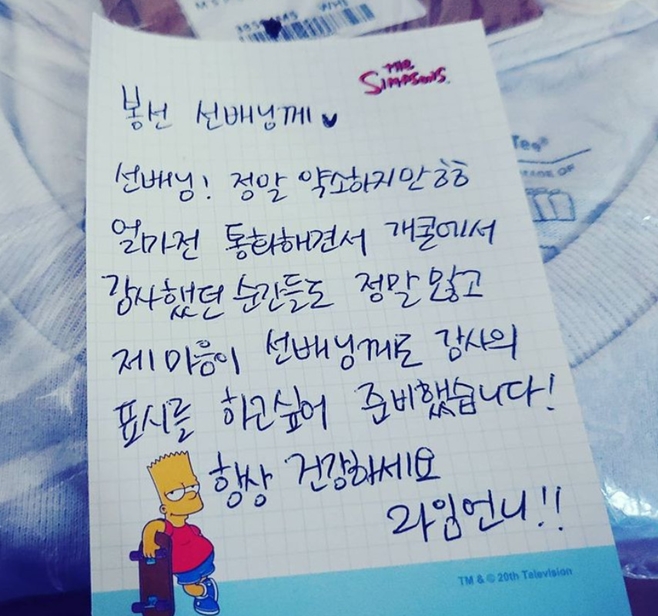 THE
SIMPSONS
봉선 선배님께
선배님! 정말 약소하지만 ㅎㅎ
얼마전 통화해면서 개콘에서
감사했던 순간들도 정말 많고
제 마음이 선배님께도 감사의
표시를 하고싶어 준비했습니다!
항상 건강하세요
라임언니!!
TM & © 20th Television
Tee®